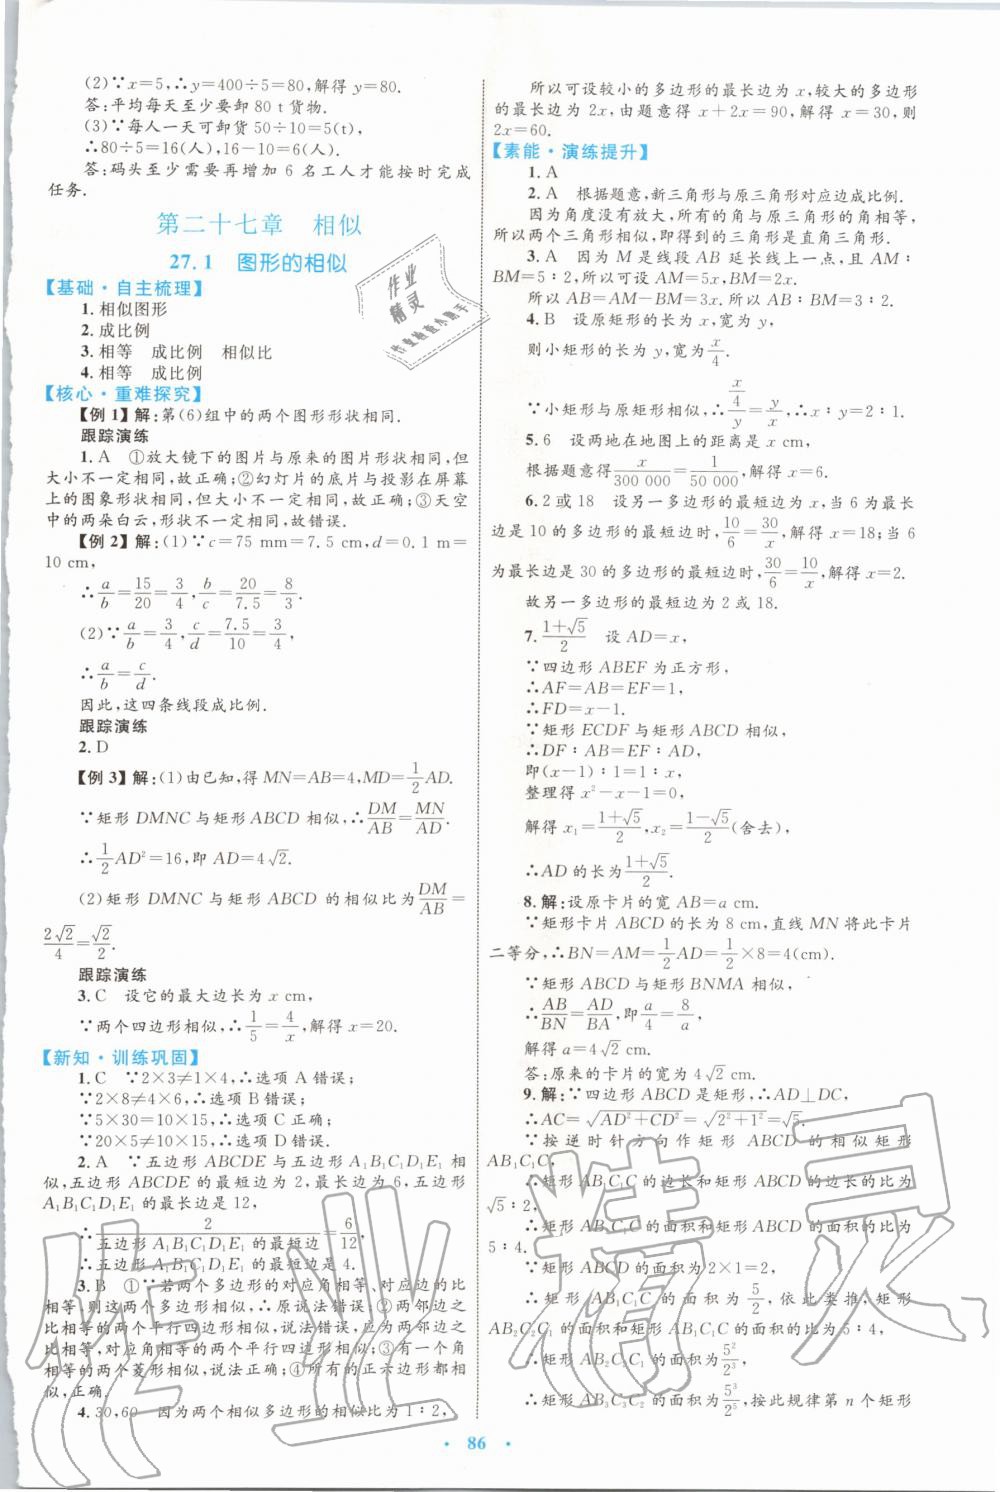 (2)∵x=5,∴y=400÷5=80,解得 y=80.
答:平均每天至少要卸 80 t 货物.
(3)∵每人一天可卸货 50÷10=5(t),
∴80÷5=16(人),16-10=6(人).
答:码头至少需要再增加 6 名工人才能按时完成
任务.
第二十七章 相似
27.1 图形的相似
【基础·自主梳理】
1.相似图形
2.成比例
3.相等 成比例 相似比
4.相等 成比例
【核心·重难探究】
【例 1】解:第(6)组中的两个图形形状相同.
跟踪演练
1.A ①放大镜下的图片与原来的图片形状相同,但
大小不一定相同,故正确;②幻灯片的底片与投影在屏幕
上的图象形状相同,但大小不一定相同,故正确;③天空
中的两朵白云,形状不一定相同,故错误.
【例 2】解:(1)∵c=75 mm=7.5 cm,d=0.1 m=
10 cm,
∴a/b=15/20=3/4,b/c=20/7.5=8/3.
(2)∵a/b=3/4,c/d=7.5/10=3/4,
∴a/b=c/d.
因此,这四条线段成比例.
跟踪演练
2.D
【例 3】解:(1)由已知,得 MN=AB=4,MD=1/2AD.
∵矩形 DMNC 与矩形 ABCD 相似,∴DM/AB=MN/AD.
∴1/2AD²=16,即 AD=4√2.
(2)矩形 DMNC 与矩形 ABCD 的相似比为DM/AB=
2√2/4=√2/2.
跟踪演练
3.C 设它的最大边长为 x cm,
∵两个四边形相似,∴1/5=4/x,解得 x=20.
【新知·训练巩固】
1.C ∵2×3≠1×4,∴选项 A 错误;
∵2×8≠4×6,∴选项 B 错误;
∵5×30=10×15,∴选项 C 正确;
∵20×5≠10×15,∴选项 D 错误.
2.A ∵五边形 ABCDE 与五边形 A₁B₁C₁D₁E₁ 相
似,五边形 ABCDE 的最短边为 2,最长边为 6,五边形
A₁B₁C₁D₁E₁ 的最长边是 12,
∴2/五边形 A₁B₁C₁D₁E₁ 的最短边=6/12.
∴五边形 A₁B₁C₁D₁E₁ 的最短边是 4.
3.B ①∵若两个多边形的对应角相等、对应边的比
相等,则这两个多边形相似,∴原说法错误;②两邻边之
比相等的两个平行四边形相似,说法错误,应为两邻边之
比相等,对应角相等的两个平行四边形相似;③有一个角
相等的两个菱形相似,说法正确;④所有的正六边形都相
似,正确.
4.30,60 因为两个相似多边形的相似比为 1∶2,
所以可设较小的多边形的最长边为 x,较大的多边形
的最长边为 2x,由题意得 x+2x=90,解得 x=30,则
2x=60.
【素能·演练提升】
1.A
2.A 根据题意,新三角形与原三角形对应边成比例.
因为角度没有放大,所有的角与原三角形的角相等,
所以两个三角形相似,即得到的三角形是直角三角形.
3.A 因为 M 是线段 AB 延长线上一点,且 AM∶
BM=5∶2,所以可设 AM=5x,BM=2x.
所以 AB=AM-BM=3x.所以 AB∶BM=3∶2.
4.B 设原矩形的长为 x,宽为 y,
则小矩形的长为 y,宽为x/4.
∵小矩形与原矩形相似,∴(x/4)/y=y/x,∴x∶y=2∶1.
5.6 设两地在地图上的距离是 x cm,
根据题意得x/300 000=1/50 000,解得 x=6.
6.2 或 18 设另一多边形的最短边为 x,当 6 为最长
边是 10 的多边形的最短边时,10/6=30/x,解得 x=18;当 6
为最长边是 30 的多边形的最短边时,30/6=10/x,解得 x=2.
故另一多边形的最短边为 2 或 18.
7.(1+√5)/2 设 AD=x,
∵四边形 ABEF 为正方形,
∴AF=AB=EF=1,
∴FD=x-1.
∵矩形 ECDF 与矩形 ABCD 相似,
∴DF∶AB=EF∶AD,
即(x-1)∶1=1∶x,
整理得 x²-x-1=0,
解得 x₁=(1+√5)/2,x₂=(1-√5)/2(舍去),
∴AD 的长为(1+√5)/2.
8.解:设原卡片的宽 AB=a cm.
∵矩形卡片 ABCD 的长为 8 cm,直线 MN 将此卡片
二等分,∴BN=AM=1/2AD=1/2×8=4(cm).
∵矩形 ABCD 与矩形 BNMA 相似,
∴AB/BN=AD/BA,即a/4=8/a,
解得 a=4√2 cm.
答:原来的卡片的宽为 4√2 cm.
9.解:∵四边形 ABCD 是矩形,∴AD⊥DC,
∴AC=√(AD²+CD²)=√(2²+1²)=√5.
∵按逆时针方向作矩形 ABCD 的相似矩形
AB₁C₁C,
∴矩形 AB₁C₁C 的边长和矩形 ABCD 的边长的比为
√5∶2,
∴矩形 AB₁C₁C 的面积和矩形 ABCD 的面积的比为
5∶4.
∵矩形 ABCD 的面积=2×1=2,
∴矩形 AB₁C₁C 的面积为5/2,依此类推,矩形
AB₂C₂C₁ 的面积和矩形 AB₁C₁C 的面积的比为 5∶4,
∴矩形 AB₂C₂C₁ 的面积为5²/2³,
∴矩形 AB₃C₃C₂ 的面积为5³/2⁵,按此规律第 n 个矩形
· 86 ·
作业
精灵
作业精灵